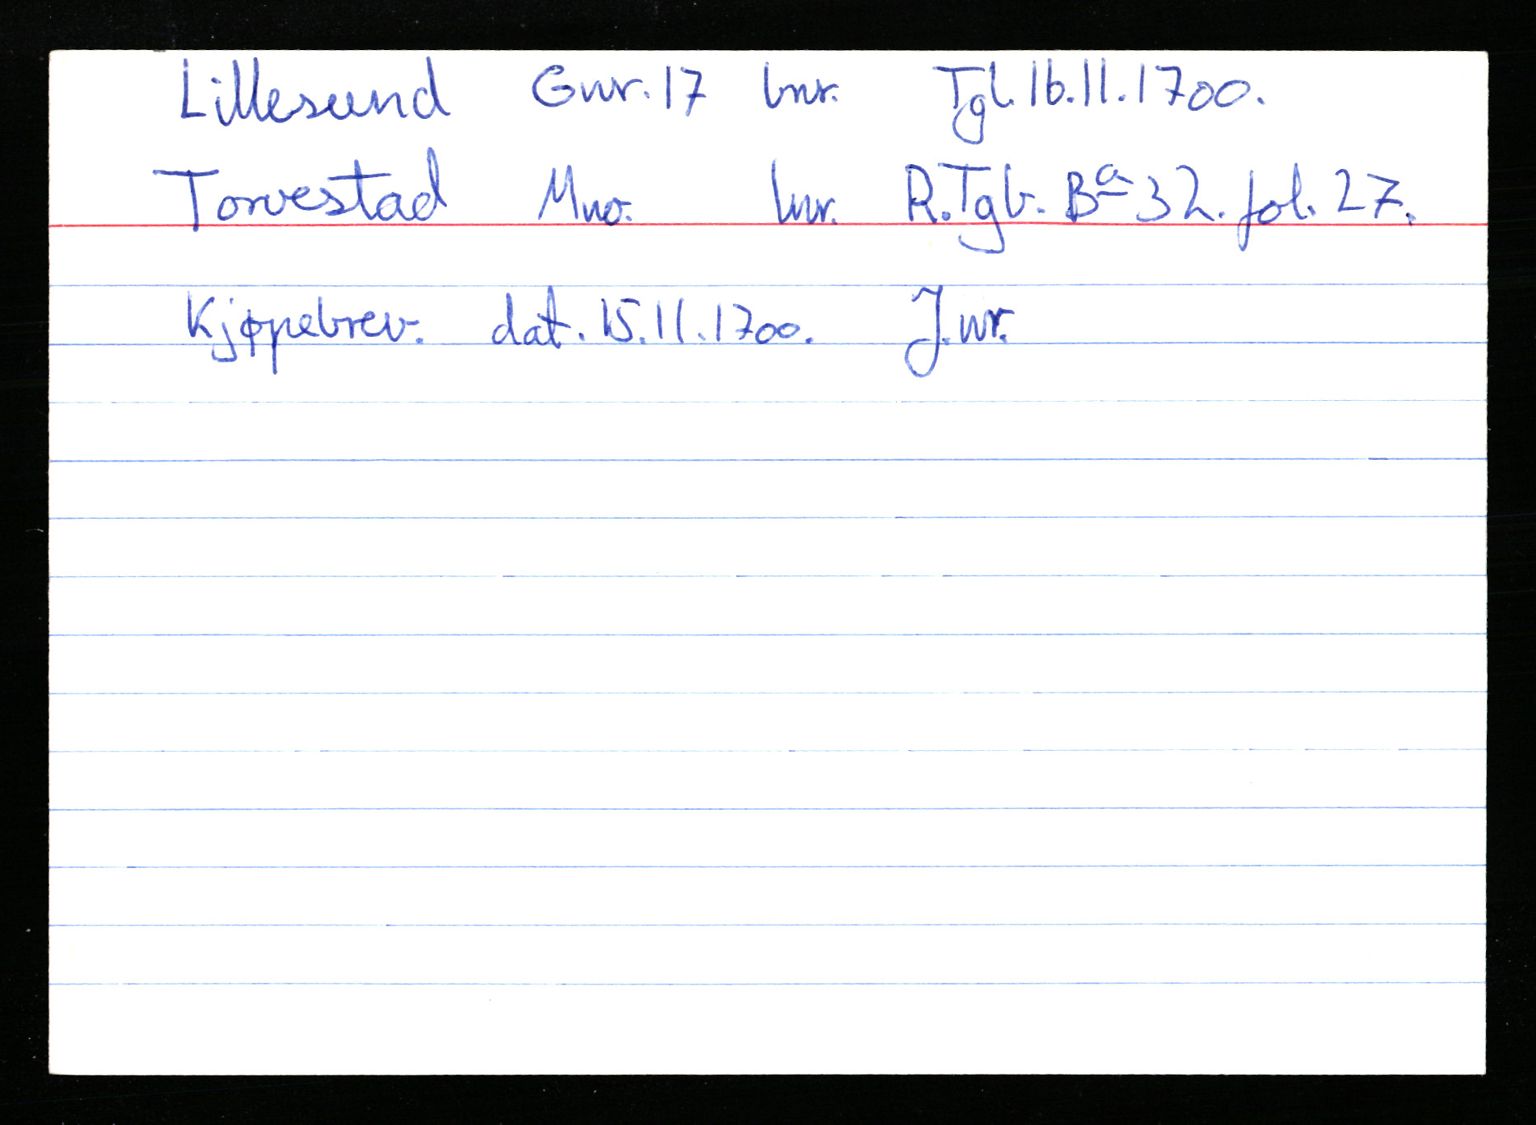 Lillesund Gnr. 17 bnr. Tgl. 16.11.1700.
Torvestad Mno. lnr. R.Tgb. Bª 32. fol. 27.
Kjøpebrev. dat. 15.11.1700. J.nr.